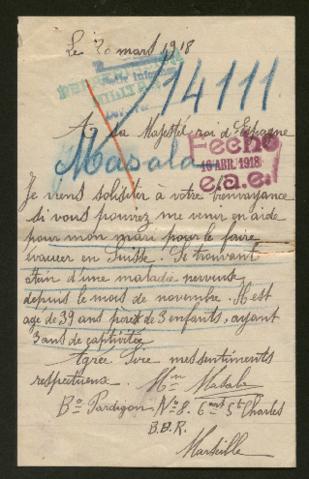 Le 20 mars 1918
14111
A sa Majesté roi d'Espagne
Masala
Fecho
16 ABR. 1918
c.a.e.
Je viens solisiter à votre bienveyance
si vous pouvez me venir en aide
pour mon mari pour le faire
évacuer en Suisse. Se trouvant
atein d'une maladie nerveuse
depuis le mois de novembre. Il est
agé de 39 ans père de 3 enfants, ayant
3 ans de captivitée
Agrée Sire mes sentiments
respectueux. Mm Masala
Bd Pardigon No 8. 6 ant St Charles
B.D.R.
Marseille